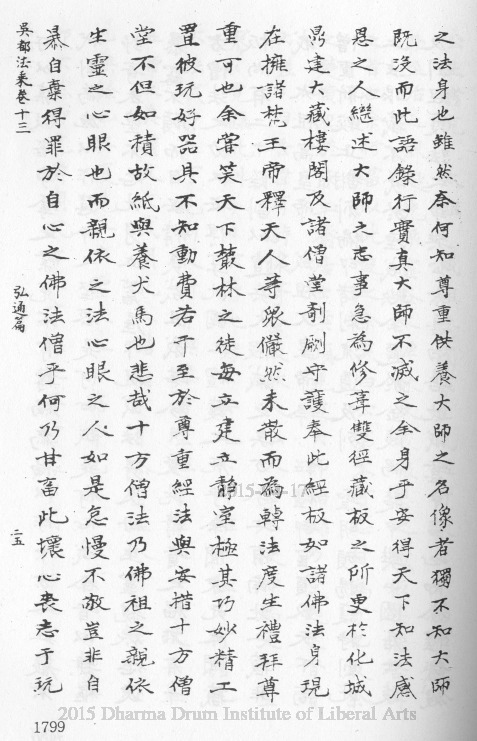 之法身也雖然奈何知尊重供養大師之名像者獨不知大師
既沒而此語錄行實真大師不滅之全身乎安得天下知法感
恩之人繼述大師之志事急為修葺雙徑藏板之所更於化城
鼎建大藏樓閣及諸僧堂剞劂守護奉此經板如諸佛法身現
在擁諸梵王帝釋天人等眾儼然未散而為轉法度生禮拜尊
重可也余嘗笑天下叢林之徒每立建立靜室極其巧妙精工
置彼玩好器具不知動費若干至於尊重經法與安措十方僧
堂不但如積故紙與養犬馬也悲哉十方僧法乃佛祖之親依
生靈之心眼也而親依之法心眼之人如是怠慢不敬豈非自
暴自棄得罪於自心之佛法僧乎何乃甘畜此壞心喪志于玩
吳都法乘卷十三
弘通篇
二五
1799
2015-03-17
2015 Dharma Drum Institute of Liberal Arts